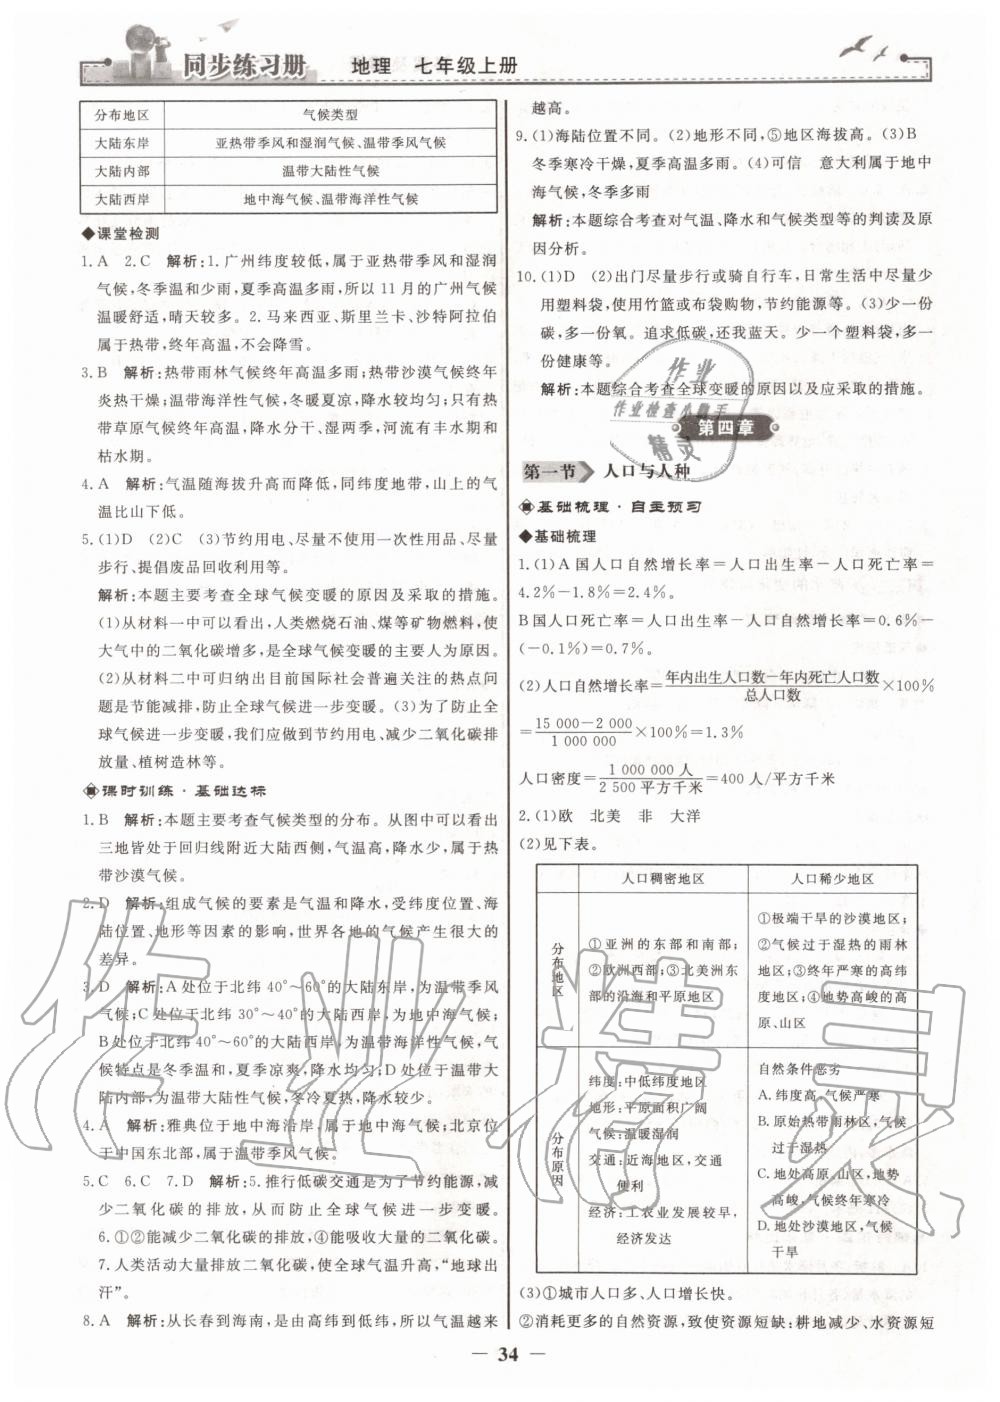 同步练习册 地理 七年级上册
分布地区 气候类型
大陆东岸 亚热带季风和湿润气候、温带季风气候
大陆内部 温带大陆性气候
大陆西岸 地中海气候、温带海洋性气候
◆课堂检测
1. A 2. C 解析:1. 广州纬度较低,属于亚热带季风和湿润
气候,冬季温和少雨,夏季高温多雨,所以 11 月的广州气候
温暖舒适,晴天较多。2. 马来西亚、斯里兰卡、沙特阿拉伯
属于热带,终年高温,不会降雪。
3. B 解析:热带雨林气候终年高温多雨;热带沙漠气候终年
炎热干燥;温带海洋性气候,冬暖夏凉,降水较均匀;只有热
带草原气候终年高温,降水分干、湿两季,河流有丰水期和
枯水期。
4. A 解析:气温随海拔升高而降低,同纬度地带,山上的气
温比山下低。
5. (1)D (2)C (3)节约用电、尽量不使用一次性用品、尽量
步行、提倡废品回收利用等。
解析:本题主要考查全球气候变暖的原因及采取的措施。
(1)从材料一中可以看出,人类燃烧石油、煤等矿物燃料,使
大气中的二氧化碳增多,是全球气候变暖的主要人为原因。
(2)从材料二中可归纳出目前国际社会普遍关注的热点问
题是节能减排,防止全球气候进一步变暖。(3)为了防止全
球气候进一步变暖,我们应做到节约用电、减少二氧化碳排
放量、植树造林等。
课时训练·基础达标
1. B 解析:本题主要考查气候类型的分布。从图中可以看出
三地皆处于回归线附近大陆西侧,气温高,降水少,属于热
带沙漠气候。
2. D 解析:组成气候的要素是气温和降水,受纬度位置、海
陆位置、地形等因素的影响,世界各地的气候产生很大的
差异。
3. D 解析:A 处位于北纬 40°～60°的大陆东岸,为温带季风
气候;C 处位于北纬 30°～40°的大陆西岸,为地中海气候;
B 处位于北纬 40°～60°的大陆西岸,为温带海洋性气候,气
候特点是冬季温和,夏季凉爽,降水均匀;D 处位于温带大
陆内部,为温带大陆性气候,冬冷夏热,降水较少。
4. A 解析:雅典位于地中海沿岸,属于地中海气候;北京位
于中国东北部,属于温带季风气候。
5. C 6. C 7. D 解析:5. 推行低碳交通是为了节约能源,减
少二氧化碳的排放,从而防止全球气候进一步变暖。
6. ①②能减少二氧化碳的排放,④能吸收大量的二氧化碳。
7. 人类活动大量排放二氧化碳,使全球气温升高,“地球出
汗”。
8. A 解析:从长春到海南,是由高纬到低纬,所以气温越来
越高。
9. (1)海陆位置不同。(2)地形不同,⑤地区海拔高。(3)B
冬季寒冷干燥,夏季高温多雨。(4)可信 意大利属于地中
海气候,冬季多雨
解析:本题综合考查对气温、降水和气候类型等的判读及原
因分析。
10. (1)D (2)出门尽量步行或骑自行车,日常生活中尽量少
用塑料袋,使用竹篮或布袋购物,节约能源等。(3)少一份
碳,多一份氧。追求低碳,还我蓝天。少一个塑料袋,多一
份健康等。
解析:本题综合考查全球变暖的原因以及应采取的措施。
作业
作业检查小帮手
精灵
第四章
第一节 人口与人种
基础梳理·自主预习
◆基础梳理
1. (1)A 国人口自然增长率=人口出生率-人口死亡率=
4.2%-1.8%=2.4%。
B 国人口死亡率=人口出生率-人口自然增长率=0.6%-
(-0.1%)=0.7%。
(2)人口自然增长率=年内出生人口数-年内死亡人口数/总人口数×100%
=15 000-2 000/1 000 000×100%=1.3%
人口密度=1 000 000 人/2 500 平方千米=400 人/平方千米
2. (1)欧 北美 非 大洋
(2)见下表。
人口稠密地区 人口稀少地区
分布地区
①亚洲的东部和南部;
②欧洲西部;③北美洲东
部的沿海和平原地区
①极端干旱的沙漠地区;
②气候过于湿热的雨林
地区;③终年严寒的高纬
度地区;④地势高峻的高
原、山区
分布原因
纬度:中低纬度地区
地形:平原面积广阔
气候:温暖湿润
交通:近海地区,交通
便利
经济:工农业发展较早,
经济发达
自然条件恶劣
A. 纬度高,气候严寒
B. 原始热带雨林,气候
过于湿热
C. 地处高原、山区,地势
高峻,气候终年寒冷
D. 地处沙漠地区,气候
干旱
(3)①城市人口多、人口增长快。
②消耗更多的自然资源,致使资源短缺:耕地减少、水资源短
作业精灵
— 34 —